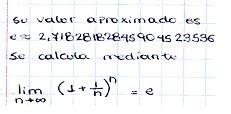 Su valor aproximado es
e ≈ 2,718281828459045 23536
Se calcula mediante
lim (1 + 1/n)^n = e
n→∞